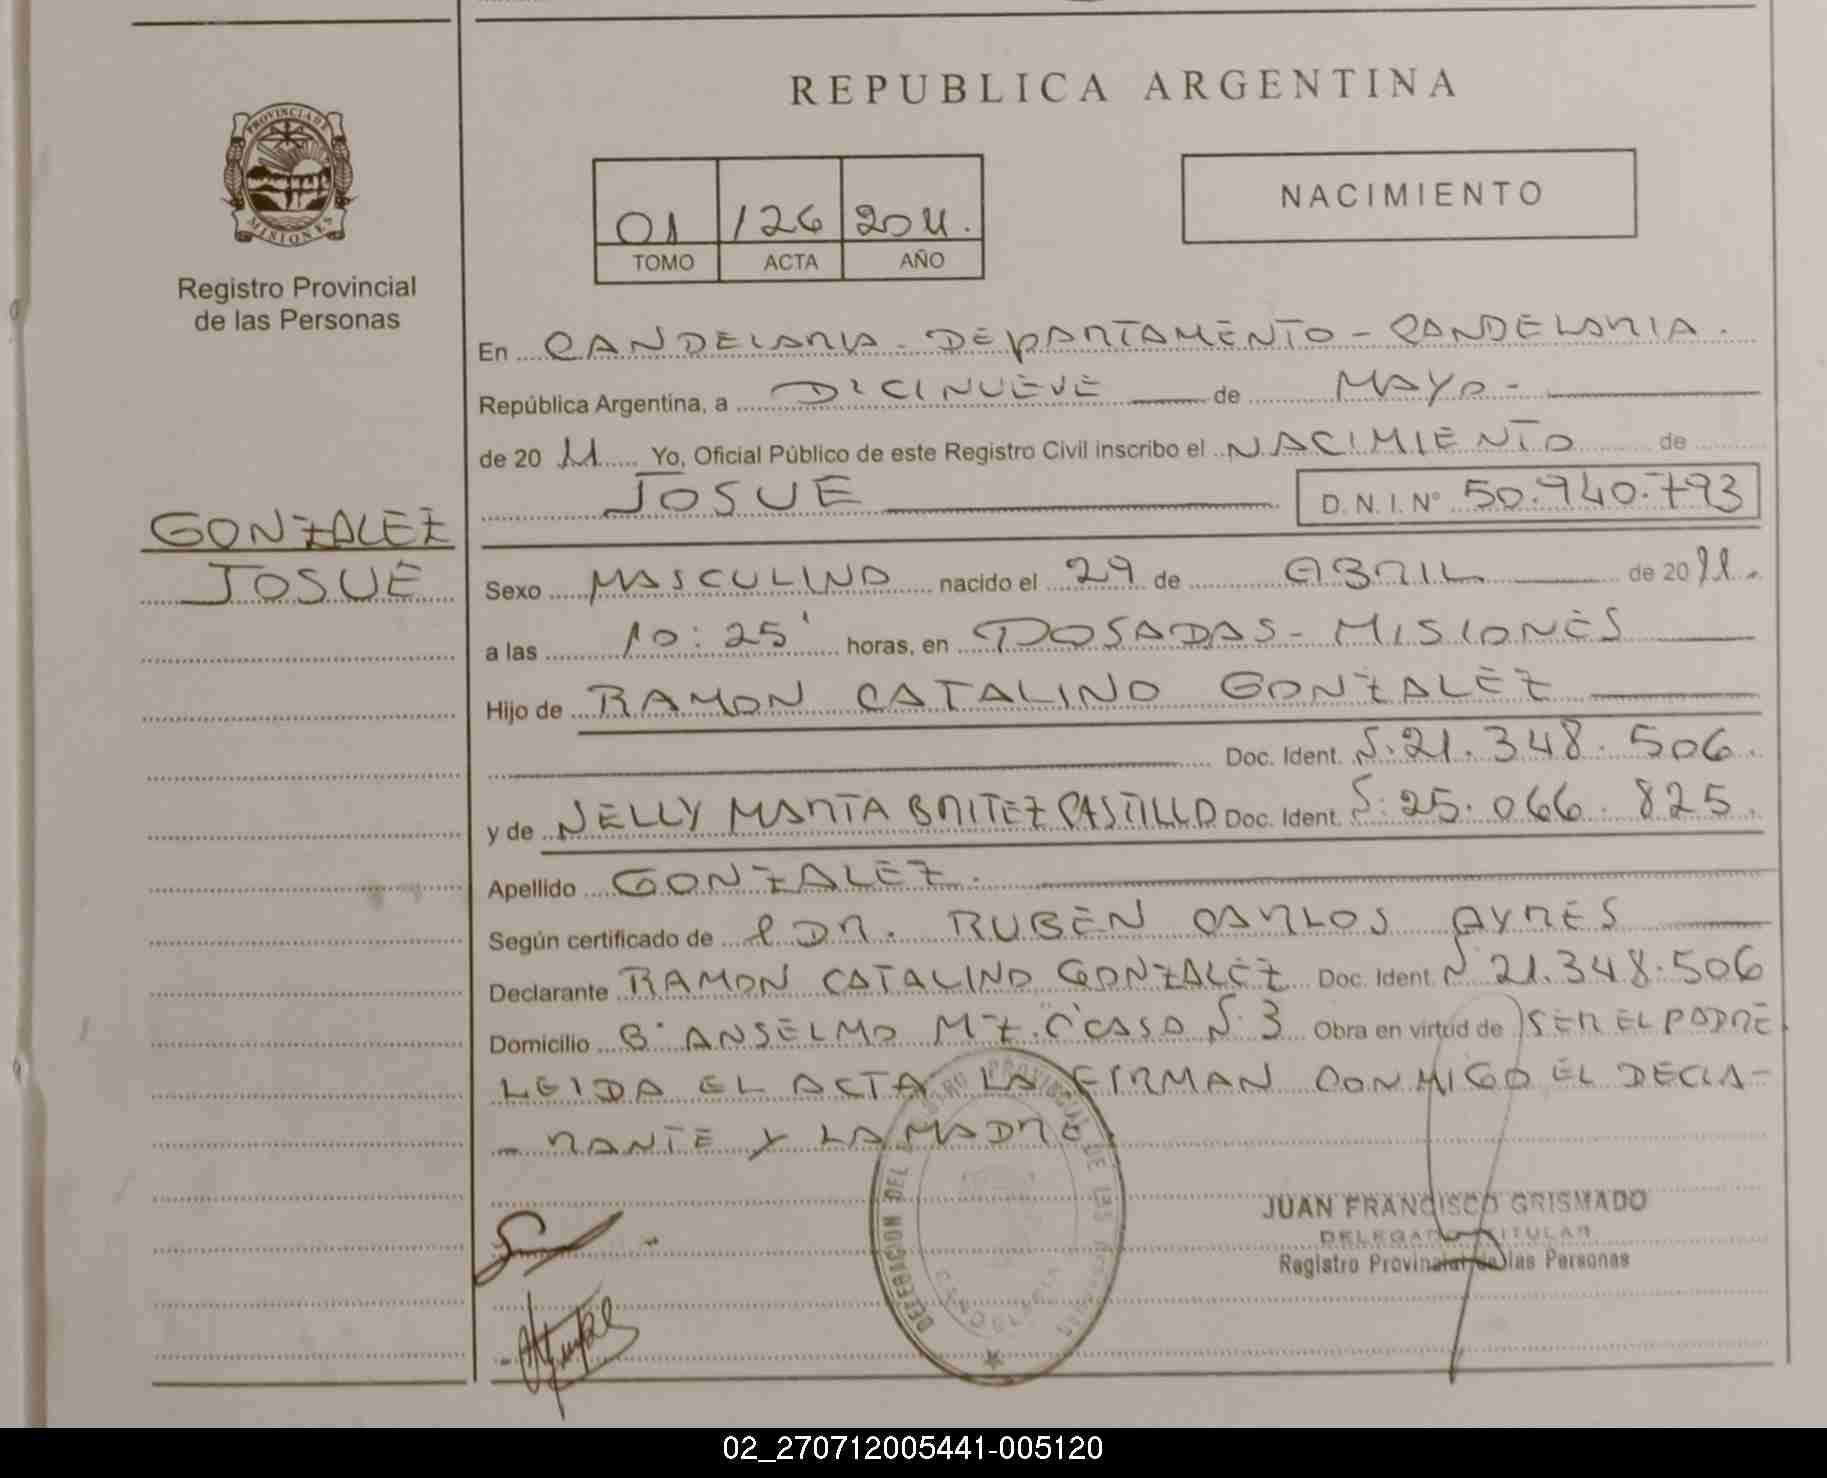 REPUBLICA ARGENTINA
PROVINCIA DE
MISIONES
Registro Provincial
de las Personas
01 126 2011.
TOMO ACTA AÑO
NACIMIENTO
En CANDELARIA - DEPARTAMENTO - CANDELARIA.
República Argentina, a DICINUEVE de MAYO -
de 20 11 Yo, Oficial Público de este Registro Civil inscribo el NACIMIENTO de
JOSUE D.N.I.Nº 50.940.793
GONZALEZ
JOSUE
Sexo MASCULINO nacido el 29 de ABRIL de 20 11.
a las 10:25' horas, en POSADAS - MISIONES
Hijo de RAMON CATALINO GONZALEZ
Doc. Ident. Nº 21.348.506.
y de NELLY MARTA BRITEZ CASTILLO Doc. Ident. Nº 25.066.825.
Apellido GONZALEZ.
Según certificado de l DR. RUBEN CARLOS AYRES
Declarante RAMON CATALINO GONZALEZ Doc. Ident. Nº 21.348.506
Domicilio Bº ANSELMO Mz. "C" CASA Nº 3 Obra en virtud de SER EL PADRE
LEIDA EL ACTA LA FIRMAN CONMIGO EL DECLA-
- RANTE Y LA MADRE.
DELEGACION DEL REGISTRO PROVINCIAL DE LAS PERSONAS
CANDELARIA
JUAN FRANCISCO GRISMADO
DELEGADO TITULAR
Registro Provincial de las Personas
02_270712005441-005120